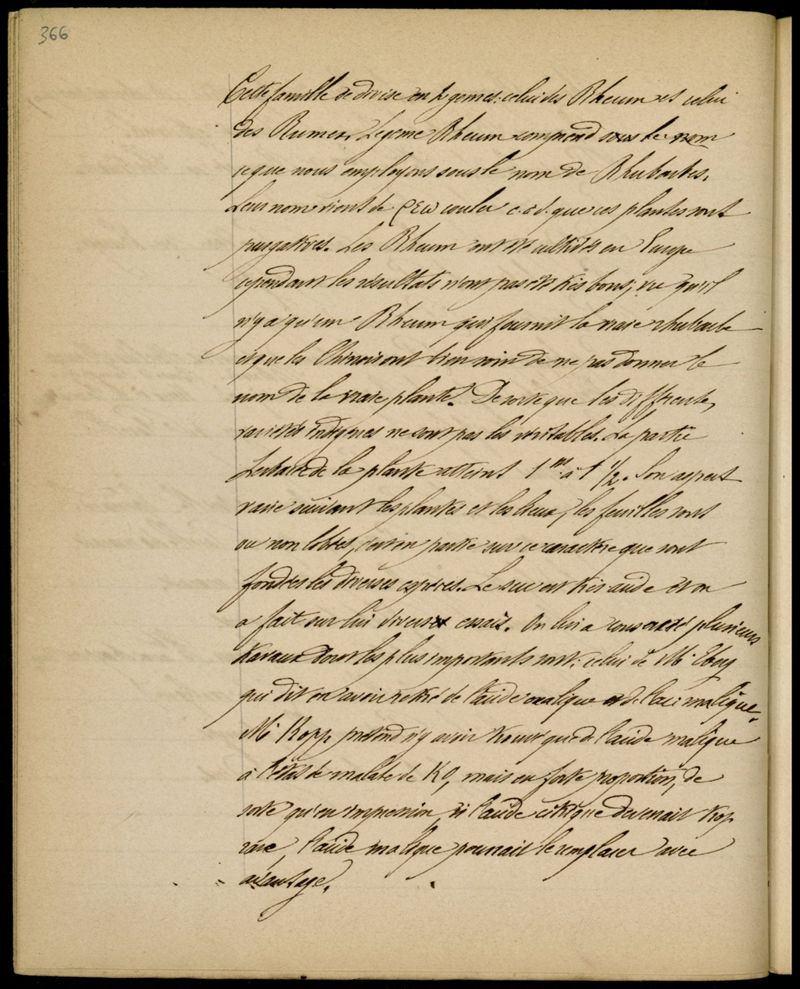 366
Cette famille se divise en 2 genres: celui des Rheum et celui
des Rumex. Le genre Rheum comprend sous le nom
ce que nous employons sous le nom de Rhubarbes.
Leur nom vient de ρεω couler c.a.d. que ces plantes sont
purgatives. Les Rheum ont été cultivés en Europe
cependant les résultats n'ont pas été très bons; vu qu'il
n'y a qu'un Rheum qui fournit la vraie rhubarbe
et que les Chinois ont bien soin de ne pas donner le
nom de la vraie plante. De sorte que les différentes
variétés indigènes ne sont pas les véritables. La partie
de la plante atteint 1m à 1 1/2. Son aspect
varie suivant les plantes et les lieux, les feuilles sont
ou non lobées, c'est en partie sur ce caractère que sont
fondées les diverses espèces. Le suc est très acide et on
a fait sur lui divers essais. On lui a consacré plusieurs
travaux dont les plus importants sont: celui de Mr
qui dit en avoir retiré de l'acide oxalique et de l'aci malique.
Mr Kopp prétend n'y avoir trouvé que de l'acide malique
à l'état de malate de KO, mais en forte proportion, de
sorte qu'en impression si l'acide citrique devenait trop
rare, l'acide malique pourrait le remplacer avec
avantage.